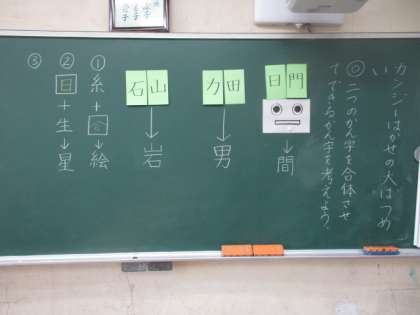 カンジーはかせの大はつめい
◎二つのかん字を合体させ
てできるかん字を考えよう。
日門
↓
間
力田
↓
男
石山
↓
岩
①糸+会→絵
②日+生→星
③